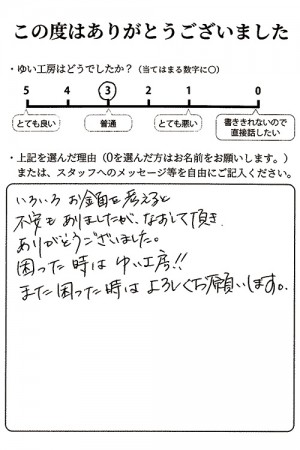 この度はありがとうございました
・ゆい工房はどうでしたか?(当てはまる数字に○)
5 4 3 2 1 0
とても良い 普通 とても悪い 書ききれないので直接話したい
・上記を選んだ理由(0を選んだ方はお名前をお願いします。)
または、スタッフへのメッセージ等を自由にご記入ください。
いろいろお金面を考えると
不安もありましたが、なおして頂き
ありがとうございました。
困った時はゆい工房!!
また困った時はよろしくお願いします。